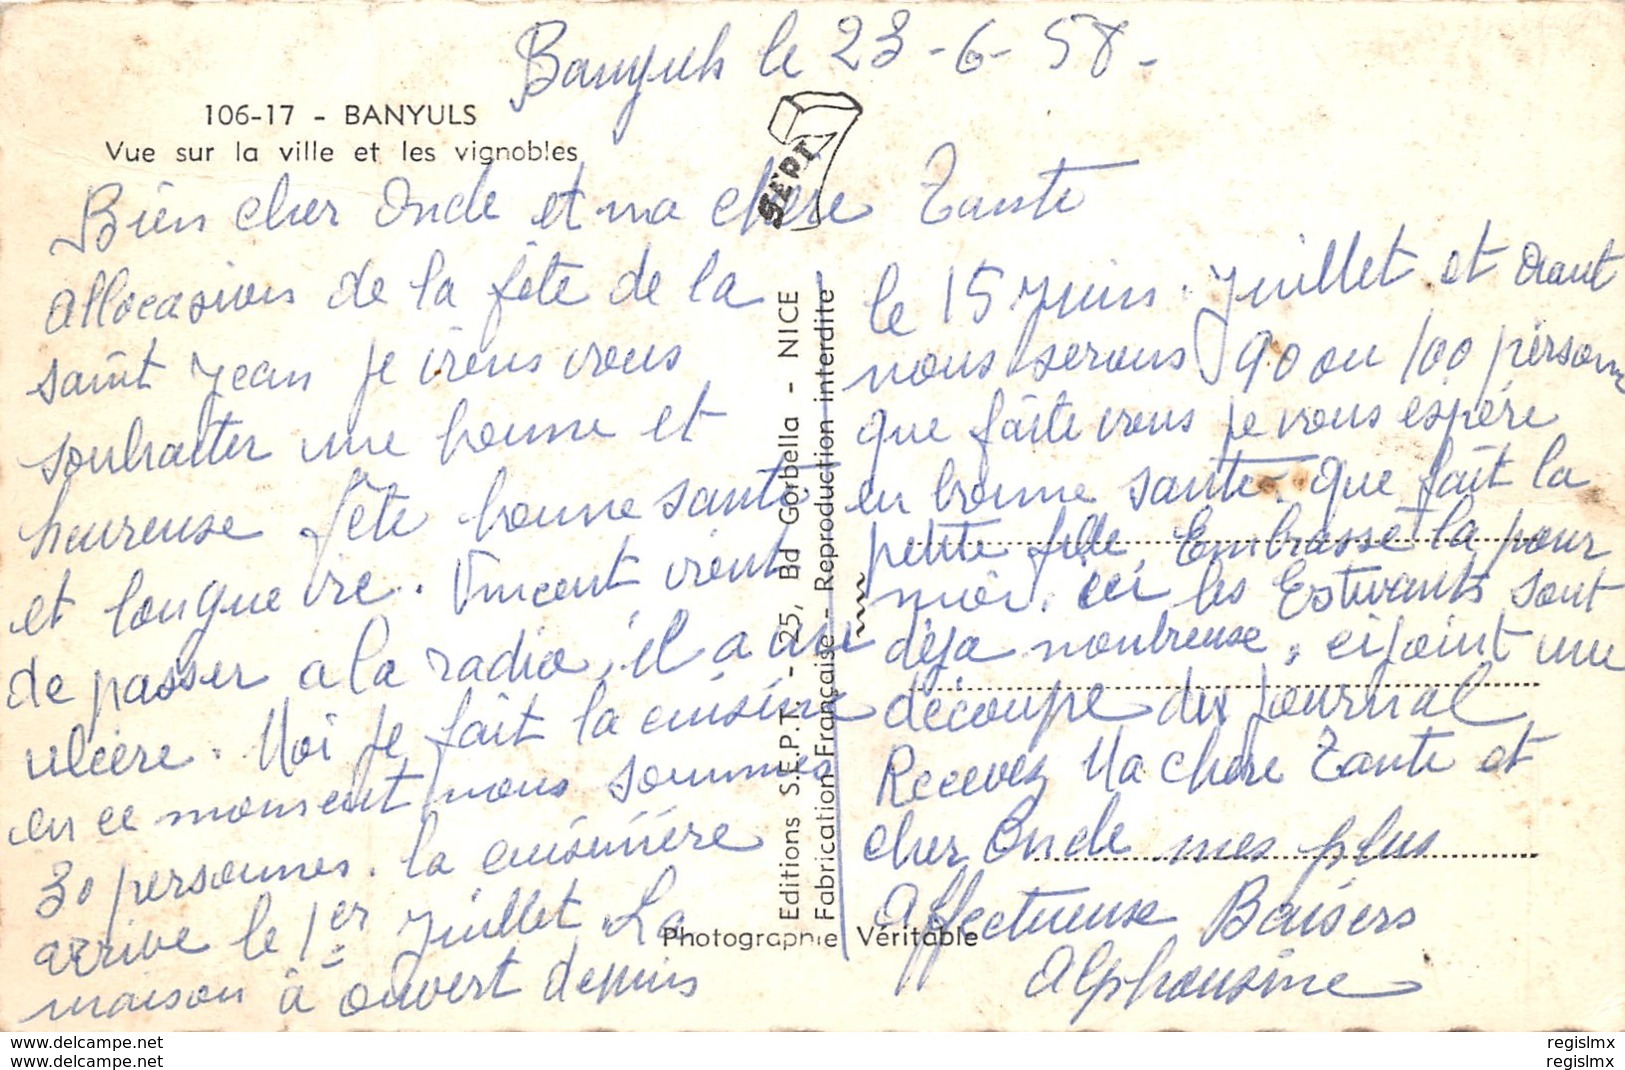 Banyuls le 23-6-58-
106-17 - BANYULS
Vue sur la ville et les vignobles
SEPT
Bien cher Oncle et ma chère Tante
allocasions de la fête de la
saint Jean je viens vous
souhaiter une bonne et
heureuse fête bonne santé
et longue vie. Vincent vient
de passer a la radio, il a un
ulcère. Moi je fait la cuisine
en ce moment nous sommes
30 personnes. la cuisinière
arrive le 1er Juillet La
maison à ouvert depuis
le 15 Juin. Juillet et Aout
nous serons 90 ou 100 persone
que faite vous je vous espère
en bonne sante. que fait la
petite fille. Embrasse la pour
moi. ici les Estivants sont
déja nonbreuse, ci joint une
découpe du journal
Recevez Ma chère Tante et
cher Oncle mes plus
Affectueuse Baisers
Alphonsine
Editions S.E.P.T. - 25, Bd Gorbella - NICE
Fabrication Française - Reproduction interdite
Photographie Véritable
delcampe.net
regislmx
delcampe.net
regislmx